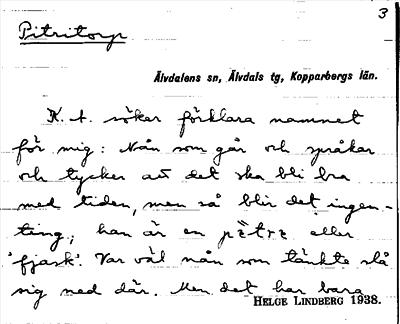 3
Pitritorp
Älvdalens sn, Älvdals tg, Kopparbergs län.
K. A. söker förklara namnet
för mig: Nån som går och språkar
och tycker att det ska bli bra
med tiden, men så blir det ingen-
ting, han är en eller
'fjask'. Var väl nån som tänkte slå
sig ned där. Men det har bara
HELGE LINDBERG 1938.